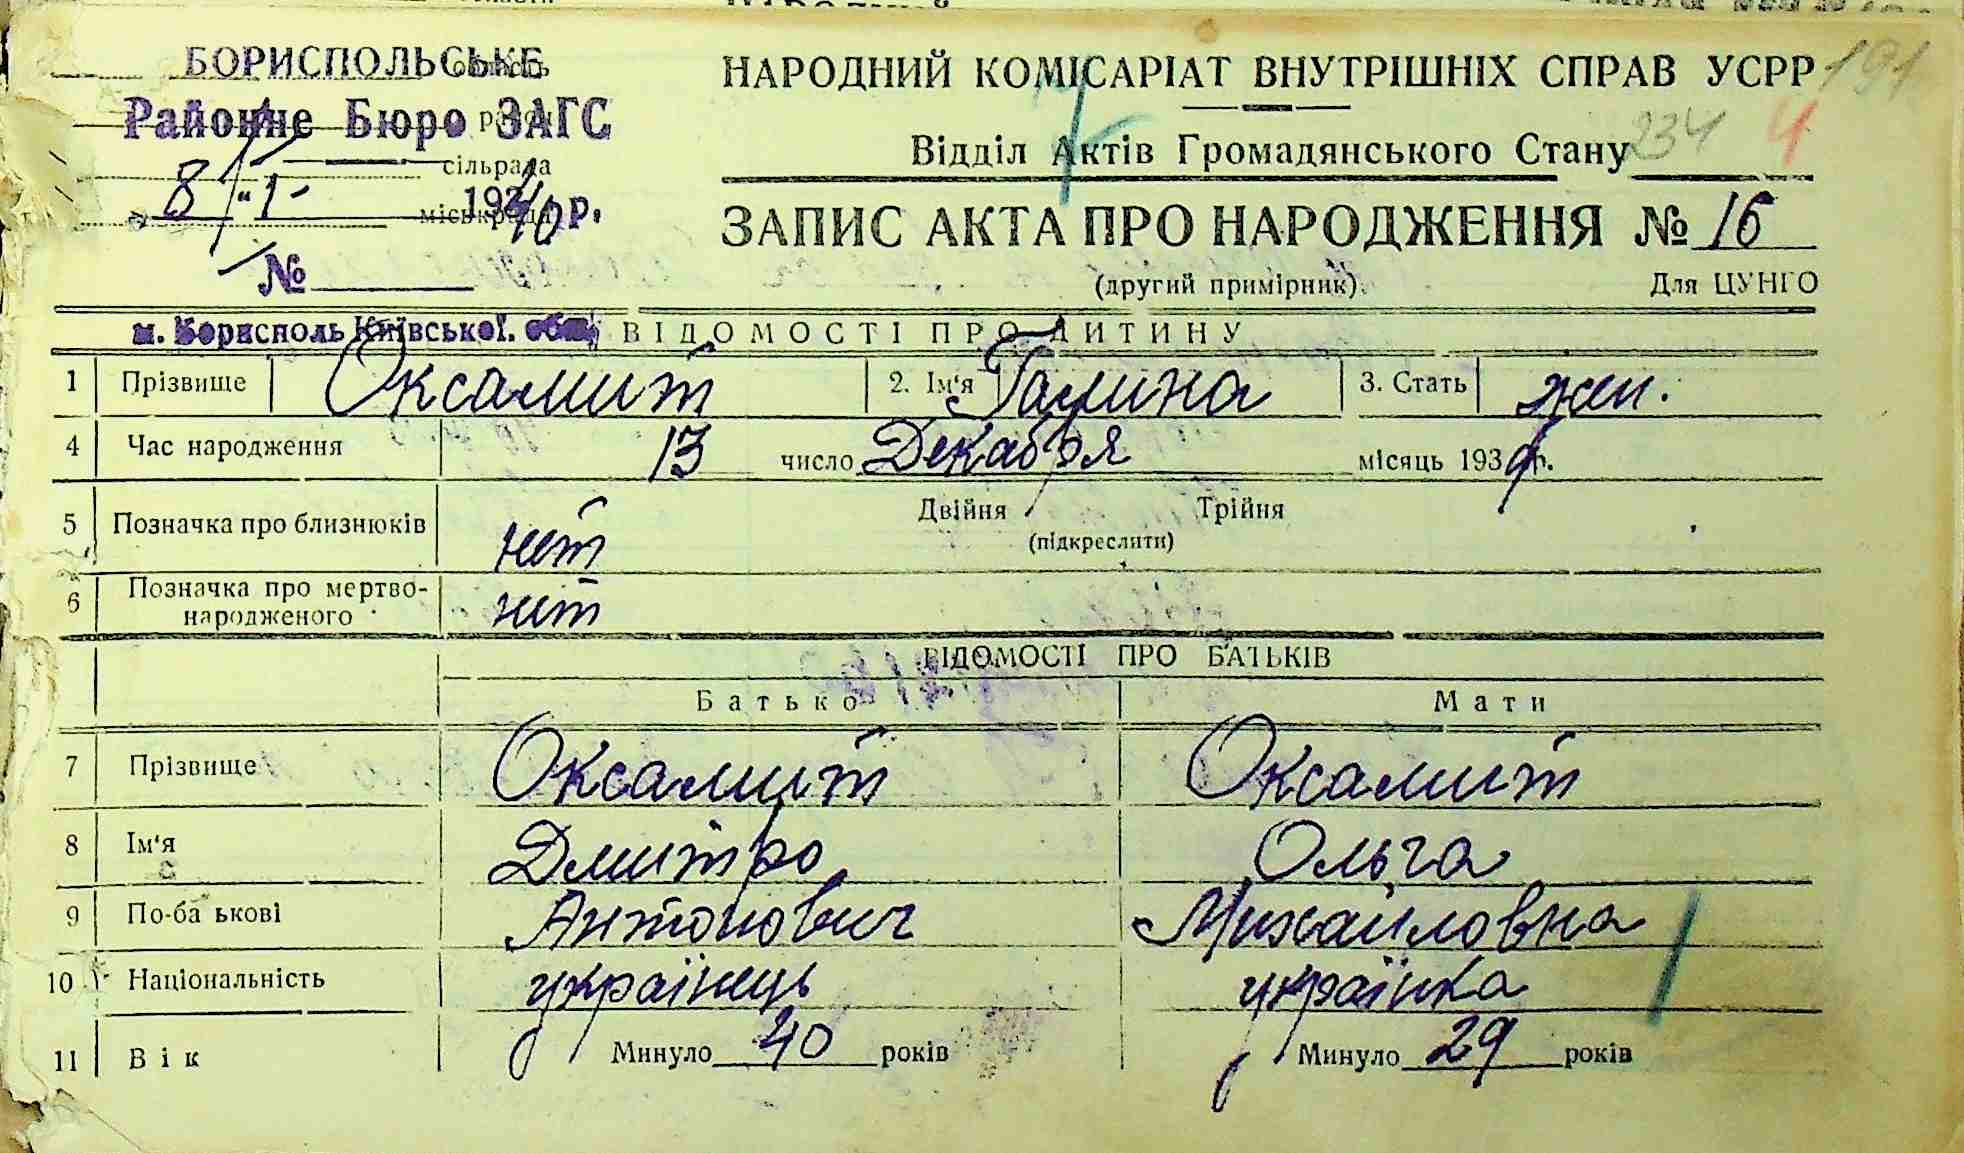 БОРИСПОЛЬСЬКЕ
Районне Бюро ЗАГС
сільрада
8/"1- 1940 р.
№
НАРОДНИЙ КОМІСАРІАТ ВНУТРІШНІХ СПРАВ УСРР 191
Відділ Актів Громадянського Стану 234 4
ЗАПИС АКТА ПРО НАРОДЖЕННЯ № 16
(другий примірник). Для ЦУНГО
м. Борисполь Київської. обл. ВІДОМОСТІ ПРО ДИТИНУ
1 Прізвище Оксамит 2. Ім'я Галина 3. Стать жен.
4 Час народження 13 число Декабря місяць 1939 р.
5 Позначка про близнюків нет Двійня Трійня
(підкреслити)
6 Позначка про мертво-
народженого нет
ВІДОМОСТІ ПРО БАТЬКІВ
Батько Мати
7 Прізвище Оксамит Оксамит
8 Ім'я Дмитро Ольга
9 По-ба ькові Антонович Михайловна
10 Національність українець українка
11 Вік Минуло 40 років Минуло 29 років